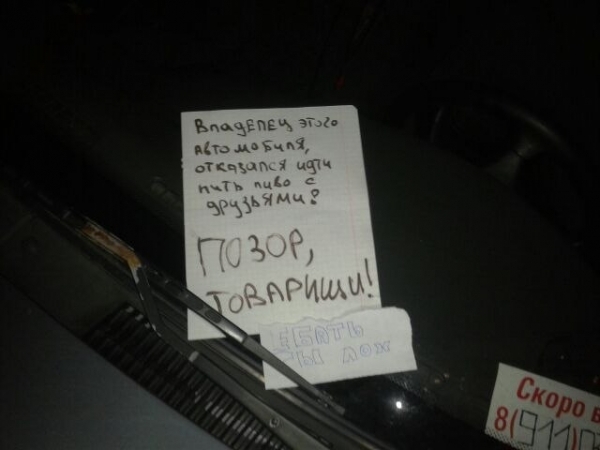 ВлаДЕЛЕЦ этого
автомобиля,
отказался идти
пить пиво с
друзьями?
ПОЗОР,
ТОВАРИЩИ!
ЕБАТЬ
ТЫ ЛОХ
Скоро
8(911)